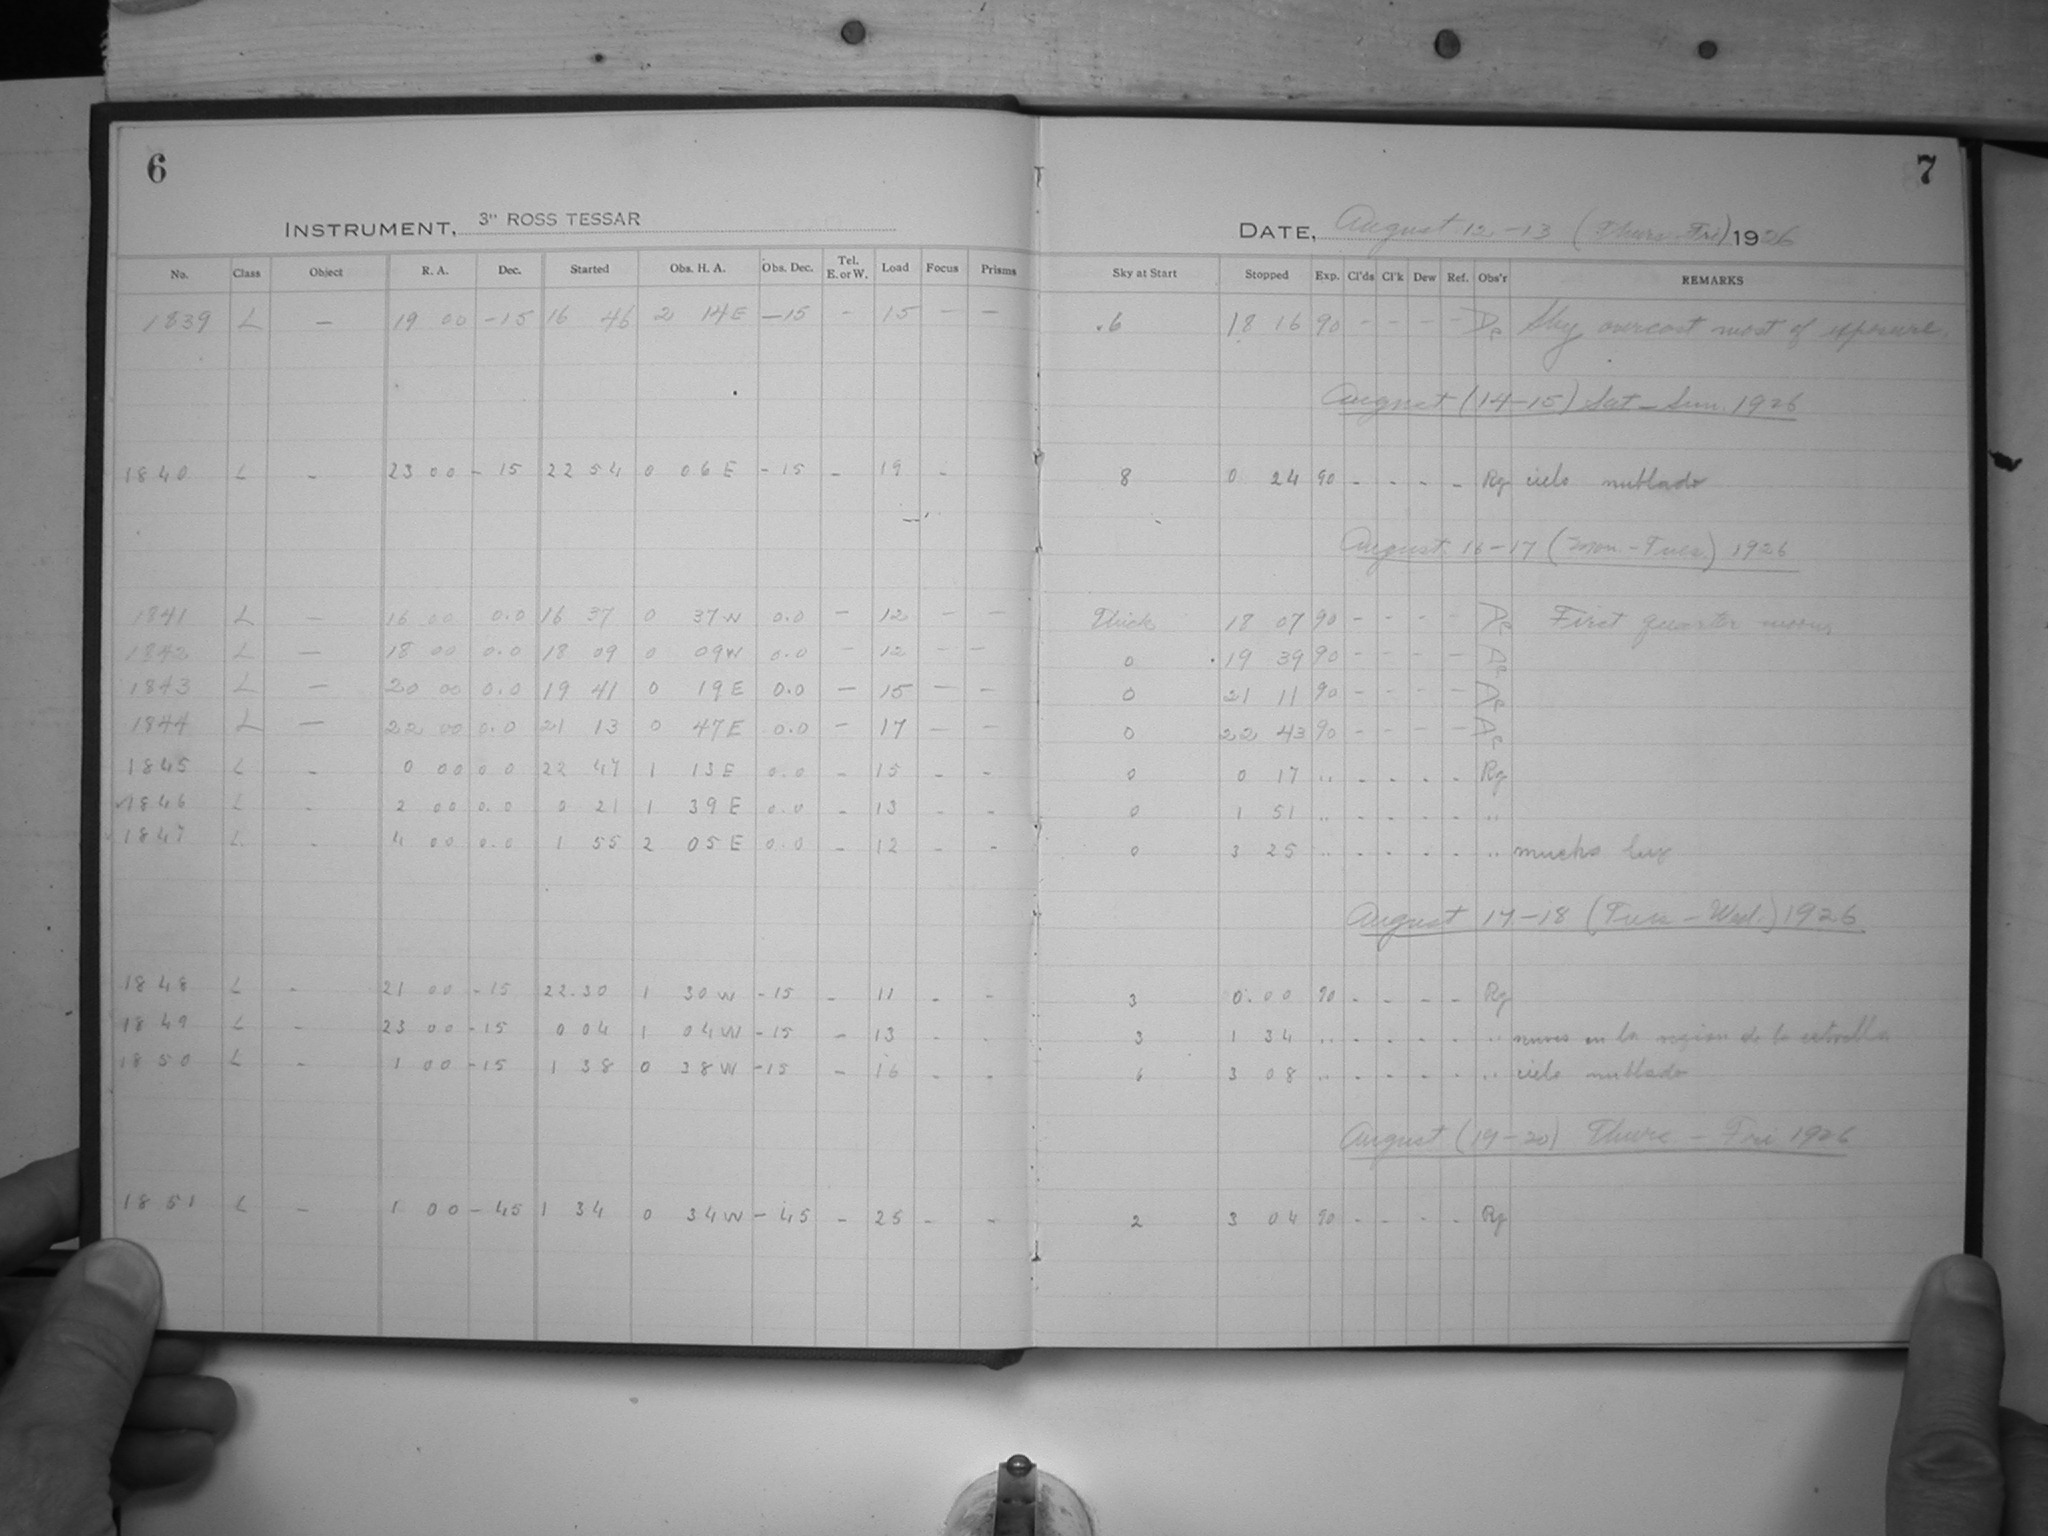 6
7
INSTRUMENT, 3" ROSS TESSAR
DATE, August 12-13 (Thurs-Fri) 1926
No. Class Object R. A. Dec. Started Obs. H. A. Obs. Dec. Tel. E. or W. Load Focus Prisms Sky at Start Stopped Exp. Cl'ds Cl'k Dew Ref. Obs'r REMARKS
1839 L — 19 00 -15 16 46 2 14E -15 - 15 - - .6 18 16 90 - - - - De Sky overcast most of exposure.
August (14-15) Sat-Sun. 1926
1840 L - 23 00 -15 22 54 0 06E -15 - 19 - 8 0 24 90 - - - - Rg cielo nublado
August 16-17 (Mon.-Tues.) 1926
1841 L — 16 00 0.0 16 37 0 37W 0.0 - 12 - - Thick 18 07 90 - - - - De First quarter moon,
1842 L — 18 00 0.0 18 09 0 09W 0.0 - 12 - - 0 19 39 90 - - - - De
1843 L — 20 00 0.0 19 41 0 19E 0.0 - 15 - - 0 21 11 90 - - - - De
1844 L — 22 00 0.0 21 13 0 47E 0.0 - 17 - - 0 22 43 90 - - - - De
1845 L - 0 00 0 0 22 47 1 13E 0.0 - 15 - - 0 0 17 " - - - - Rg
1846 L - 2 00 0.0 0 21 1 39E 0.0 - 13 - - 0 1 51 " - - - - "
1847 L - 4 00 0.0 1 55 2 05E 0.0 - 12 - - 0 3 25 " - - - - " mucha luz
August 17-18 (Tues-Wed.) 1926
1848 L - 21 00 -15 22.30 1 30W -15 - 11 - - 3 0.00 90 - - - - Rg
1849 L - 23 00 -15 0 04 1 04W -15 - 13 - - 3 1 34 " - - - - " en la region de la estrella
1850 L - 1 00 -15 1 38 0 38W -15 - 16 - - 6 3 08 " - - - - " cielo nublado
August (19-20) Thurs - Fri 1926
1851 L - 1 00 -45 1 34 0 34W -45 - 25 - - 2 3 04 90 - - - - Rg